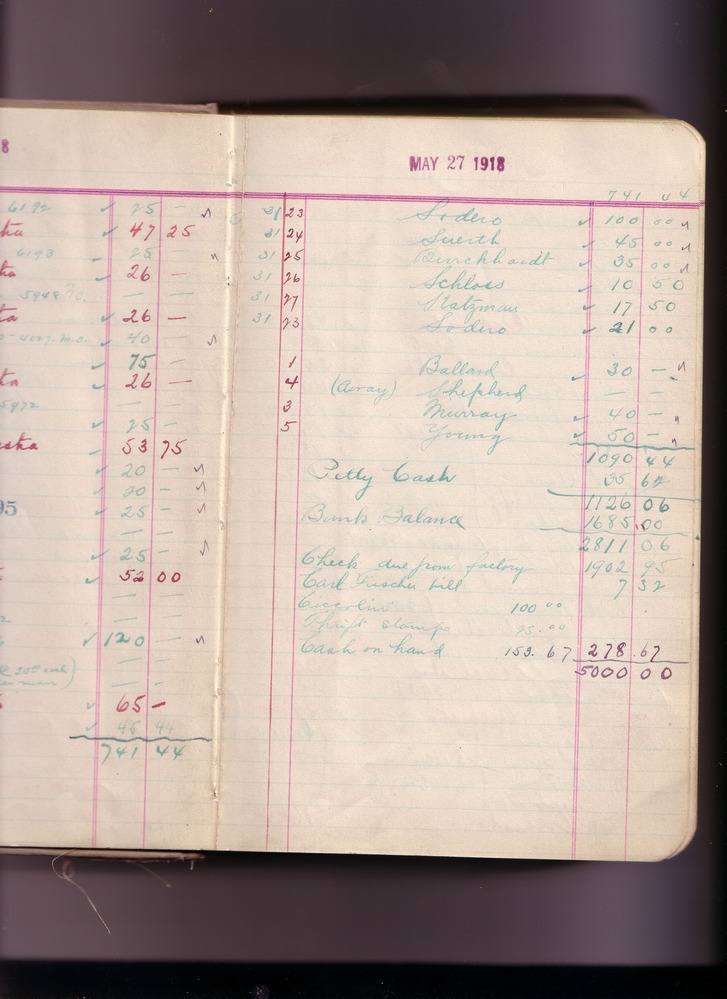 8
6192 ✓ 25 —
✓ 47 25
6193 25 —
✓ 26 —
5948 — —
✓ 26 —
✓ 40 —
✓ 75 —
✓ 26 —
5972 — —
✓ 25 —
✓ 53 75
✓ 20 —
✓ 20 —
95 ✓ 25 —
— —
✓ 25 —
✓ 52 00
— —
— —
✓ 120 —
— —
✓ 65 —
✓ 46 44
741 44
MAY 27 1918
741 44
31 23 Sodero ✓ 100 00
31 24 Suerth ✓ 45 00
31 25 Burckhardt ✓ 35 00
31 26 Schloss ✓ 10 50
31 27 Katzman ✓ 17 50
31 23 Sodero ✓ 21 00
1 Ballard ✓ 30 —
4 (Away) Shepherd — —
3 Murray ✓ 40 —
5 Young ✓ 50 —
1090 44
Petty Cash 35 62
1126 06
Bank Balance 1685.00
2811 06
Check due from factory 1902 95
Carl Fischer bill 7 32
Ciccolini 100 00
Thrift stamps 25.00
Cash on hand 153.67 278.67
5000 00